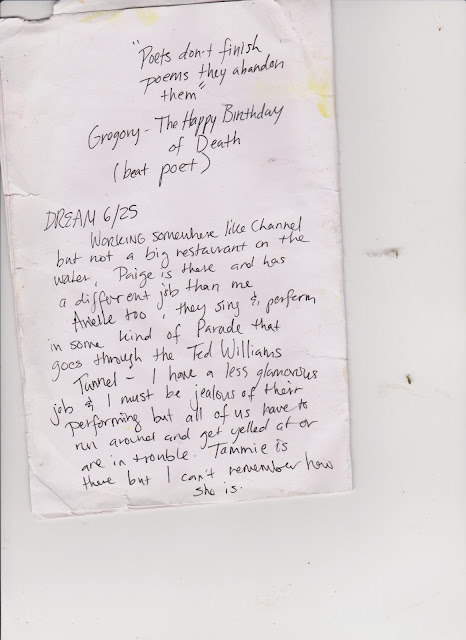 "Poets don't finish
poems they abandon
them"
Gregory - The Happy Birthday
of Death
(beat poet)
DREAM 6/25
WORKING somewhere like Channel
but not a big restaurant on the
water, Paige is there and has
a different job than me
Arielle too, they sing &, perform
in some kind of Parade that
goes through the Ted Williams
Tunnel - I have a less glamorous
job & I must be jealous of their
performing but all of us have to
run around and get yelled at or
are in trouble. Tammie is
there but I can't remember how
she is.